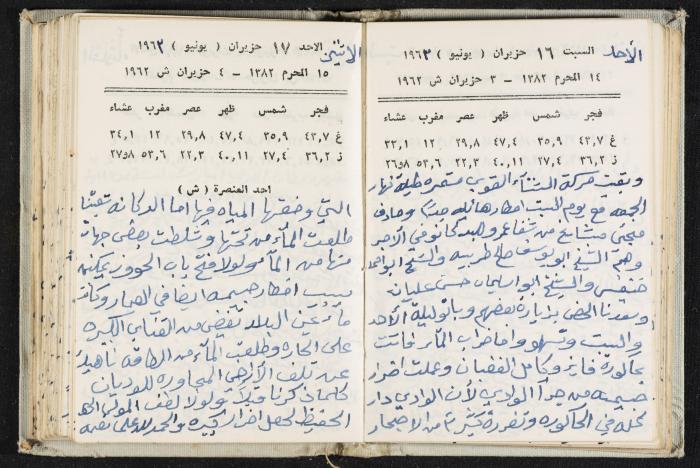 الأحد السبت ١٦ حزيران ( يونيو ) ١٩٦٣
١٤ المحرم ١٣٨٢ – ٣ حزيران ش ١٩٦٢
فجر شمس ظهر عصر مغرب عشاء
غ ٤٣,٧ ٣٥,٩ ٤٧,٤ ٢٩,٨ ١٢ ٣٣,١
ز ٣٦,٢ ٢٧,٤ ٤٠,١١ ٢٢,٣ ٥٣,٦ ٢٦و٨
وبقيت حركة الشتاء القوي مستمره طيلة نهار
الجمعه مع يوم السبت امطار هائله جداً وصادف
مشايخ من شفاعمرو للبلد كانو في الأجر
وهم الشيخ ابو يوسف صالح طربيه والشيخ ابو
خنيفس والشيخ ابو سليمان حسن عليان
وسعدنا الحض بزيارة بعضهم وباتو ليلة الأحد
والسبت واما ضراب الماء فأتت
كامل القضبان وعملت اضرار
جسيمه من جراء الوادي لأن الوادي دار
كله في الحاكوره من الاصحار
الاثنين الاحد ١٧ حزيران ( يونيو ) ١٩٦٣
١٥ المحرم ١٣٨٢ – ٤ حزيران ش ١٩٦٢
فجر شمس ظهر عصر مغرب عشاء
غ ٤٣,٧ ٣٥,٩ ٤٧,٤ ٢٩,٨ ١٢ ٣٤,١
ز ٣٦,٢ ٢٧,٤ ٤٠,١١ ٢٢,٣ ٥٣,٦ ٢٧و٨
احد العنصرة ( ش )
التي وضعتها المياه فيها اما الدكانه تبعتنا
طلعت الماء من تحتها وشلطت بعض جهات
منها من الماء ولولا فتح باب
بسبب امطار جسيمه ايضا في الصبار وكان
ماء عين البلاد يفيض من القناني الكبيره
على الحاره وطلعت الماء من الطاقه ناهيك
عن تلف الأراضي المجاوره للوديان
كلما ذكرنا ولولا لطف المولى
الحفيظ لحصل اضرار كبيره والحمد لله على نعمه